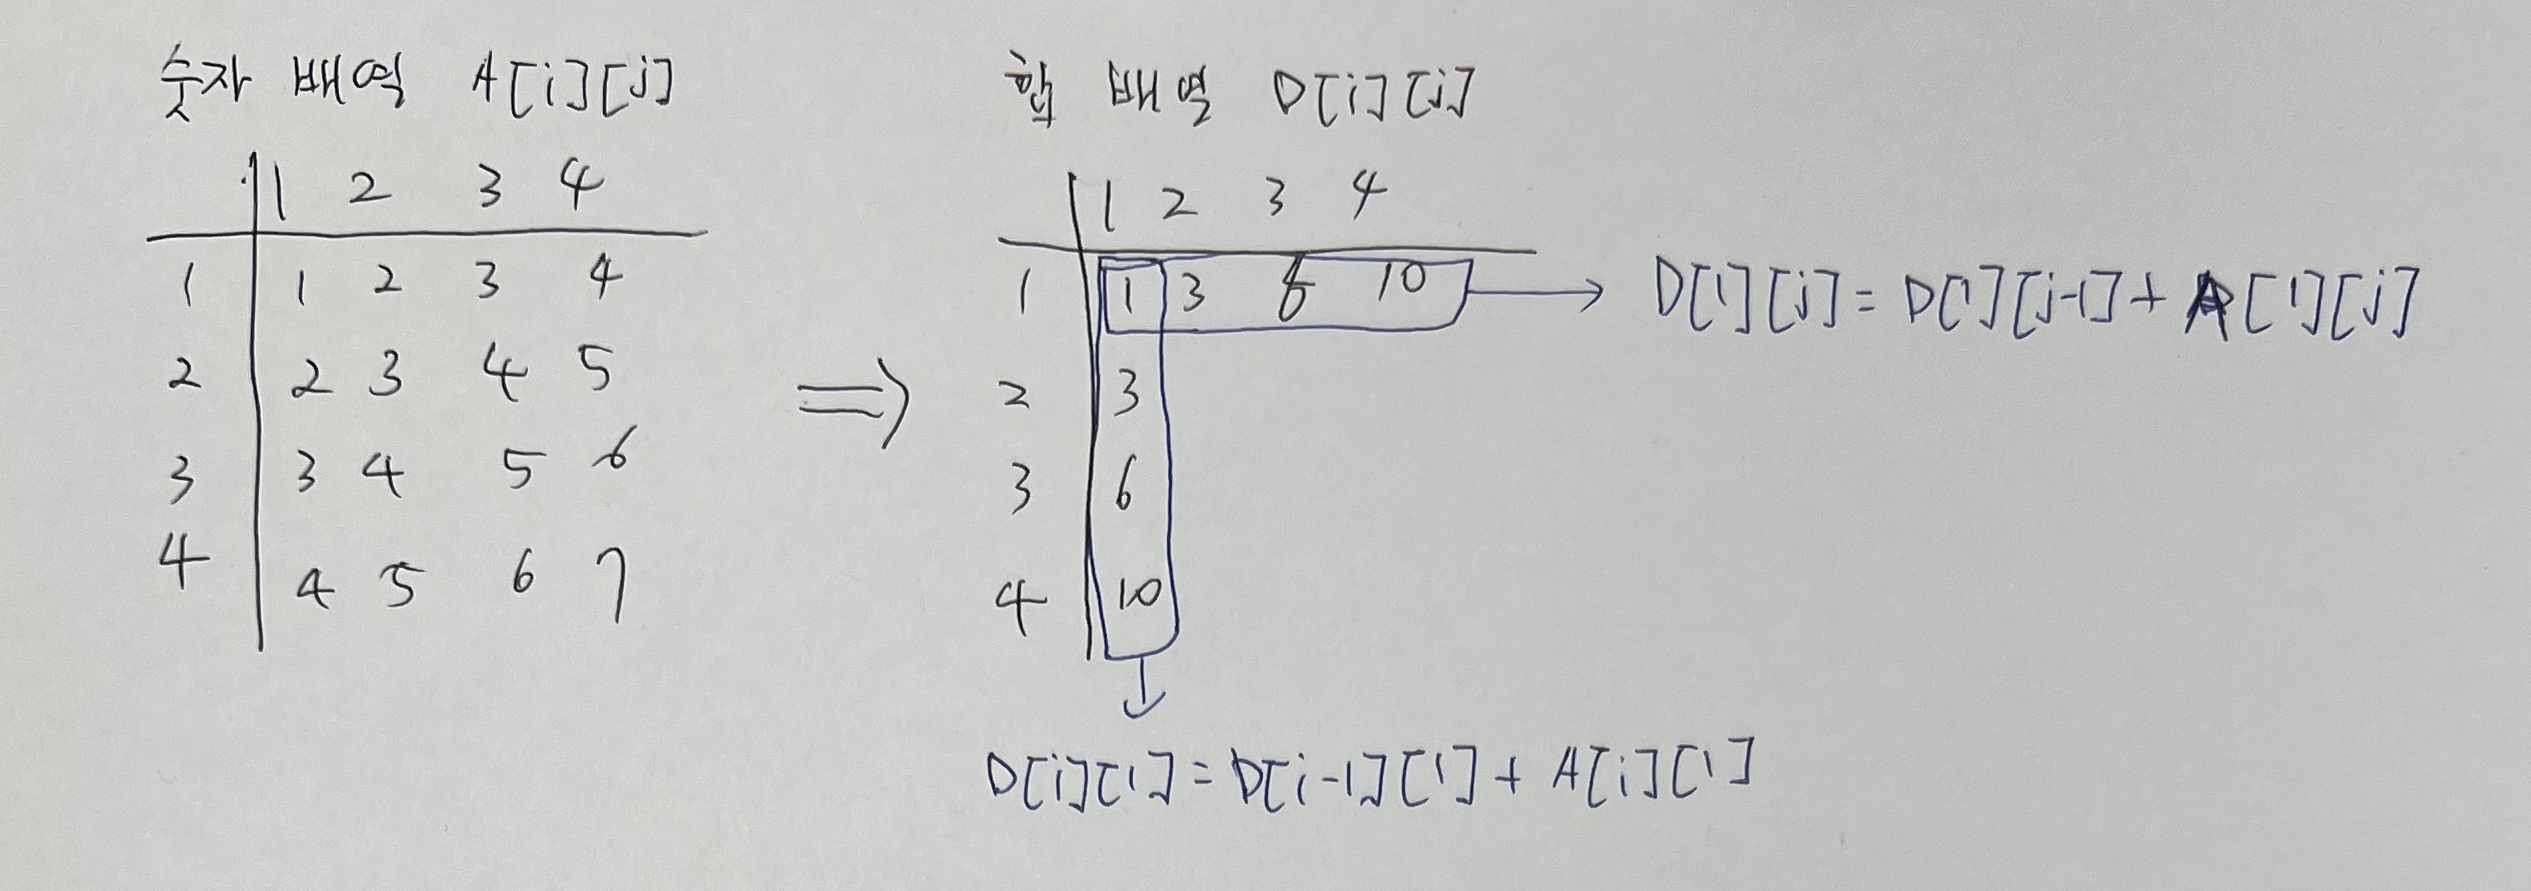 숫자 배열 A[i][j]
1 2 3 4
1 1 2 3 4
2 2 3 4 5
3 3 4 5 6
4 4 5 6 7
합 배열 D[i][j]
1 2 3 4
1 1 3 6 10
2 3
3 6
4 10
D[1][j]=D[1][j-1]+A[1][j]
D[i][1]=D[i-1][1]+A[i][1]